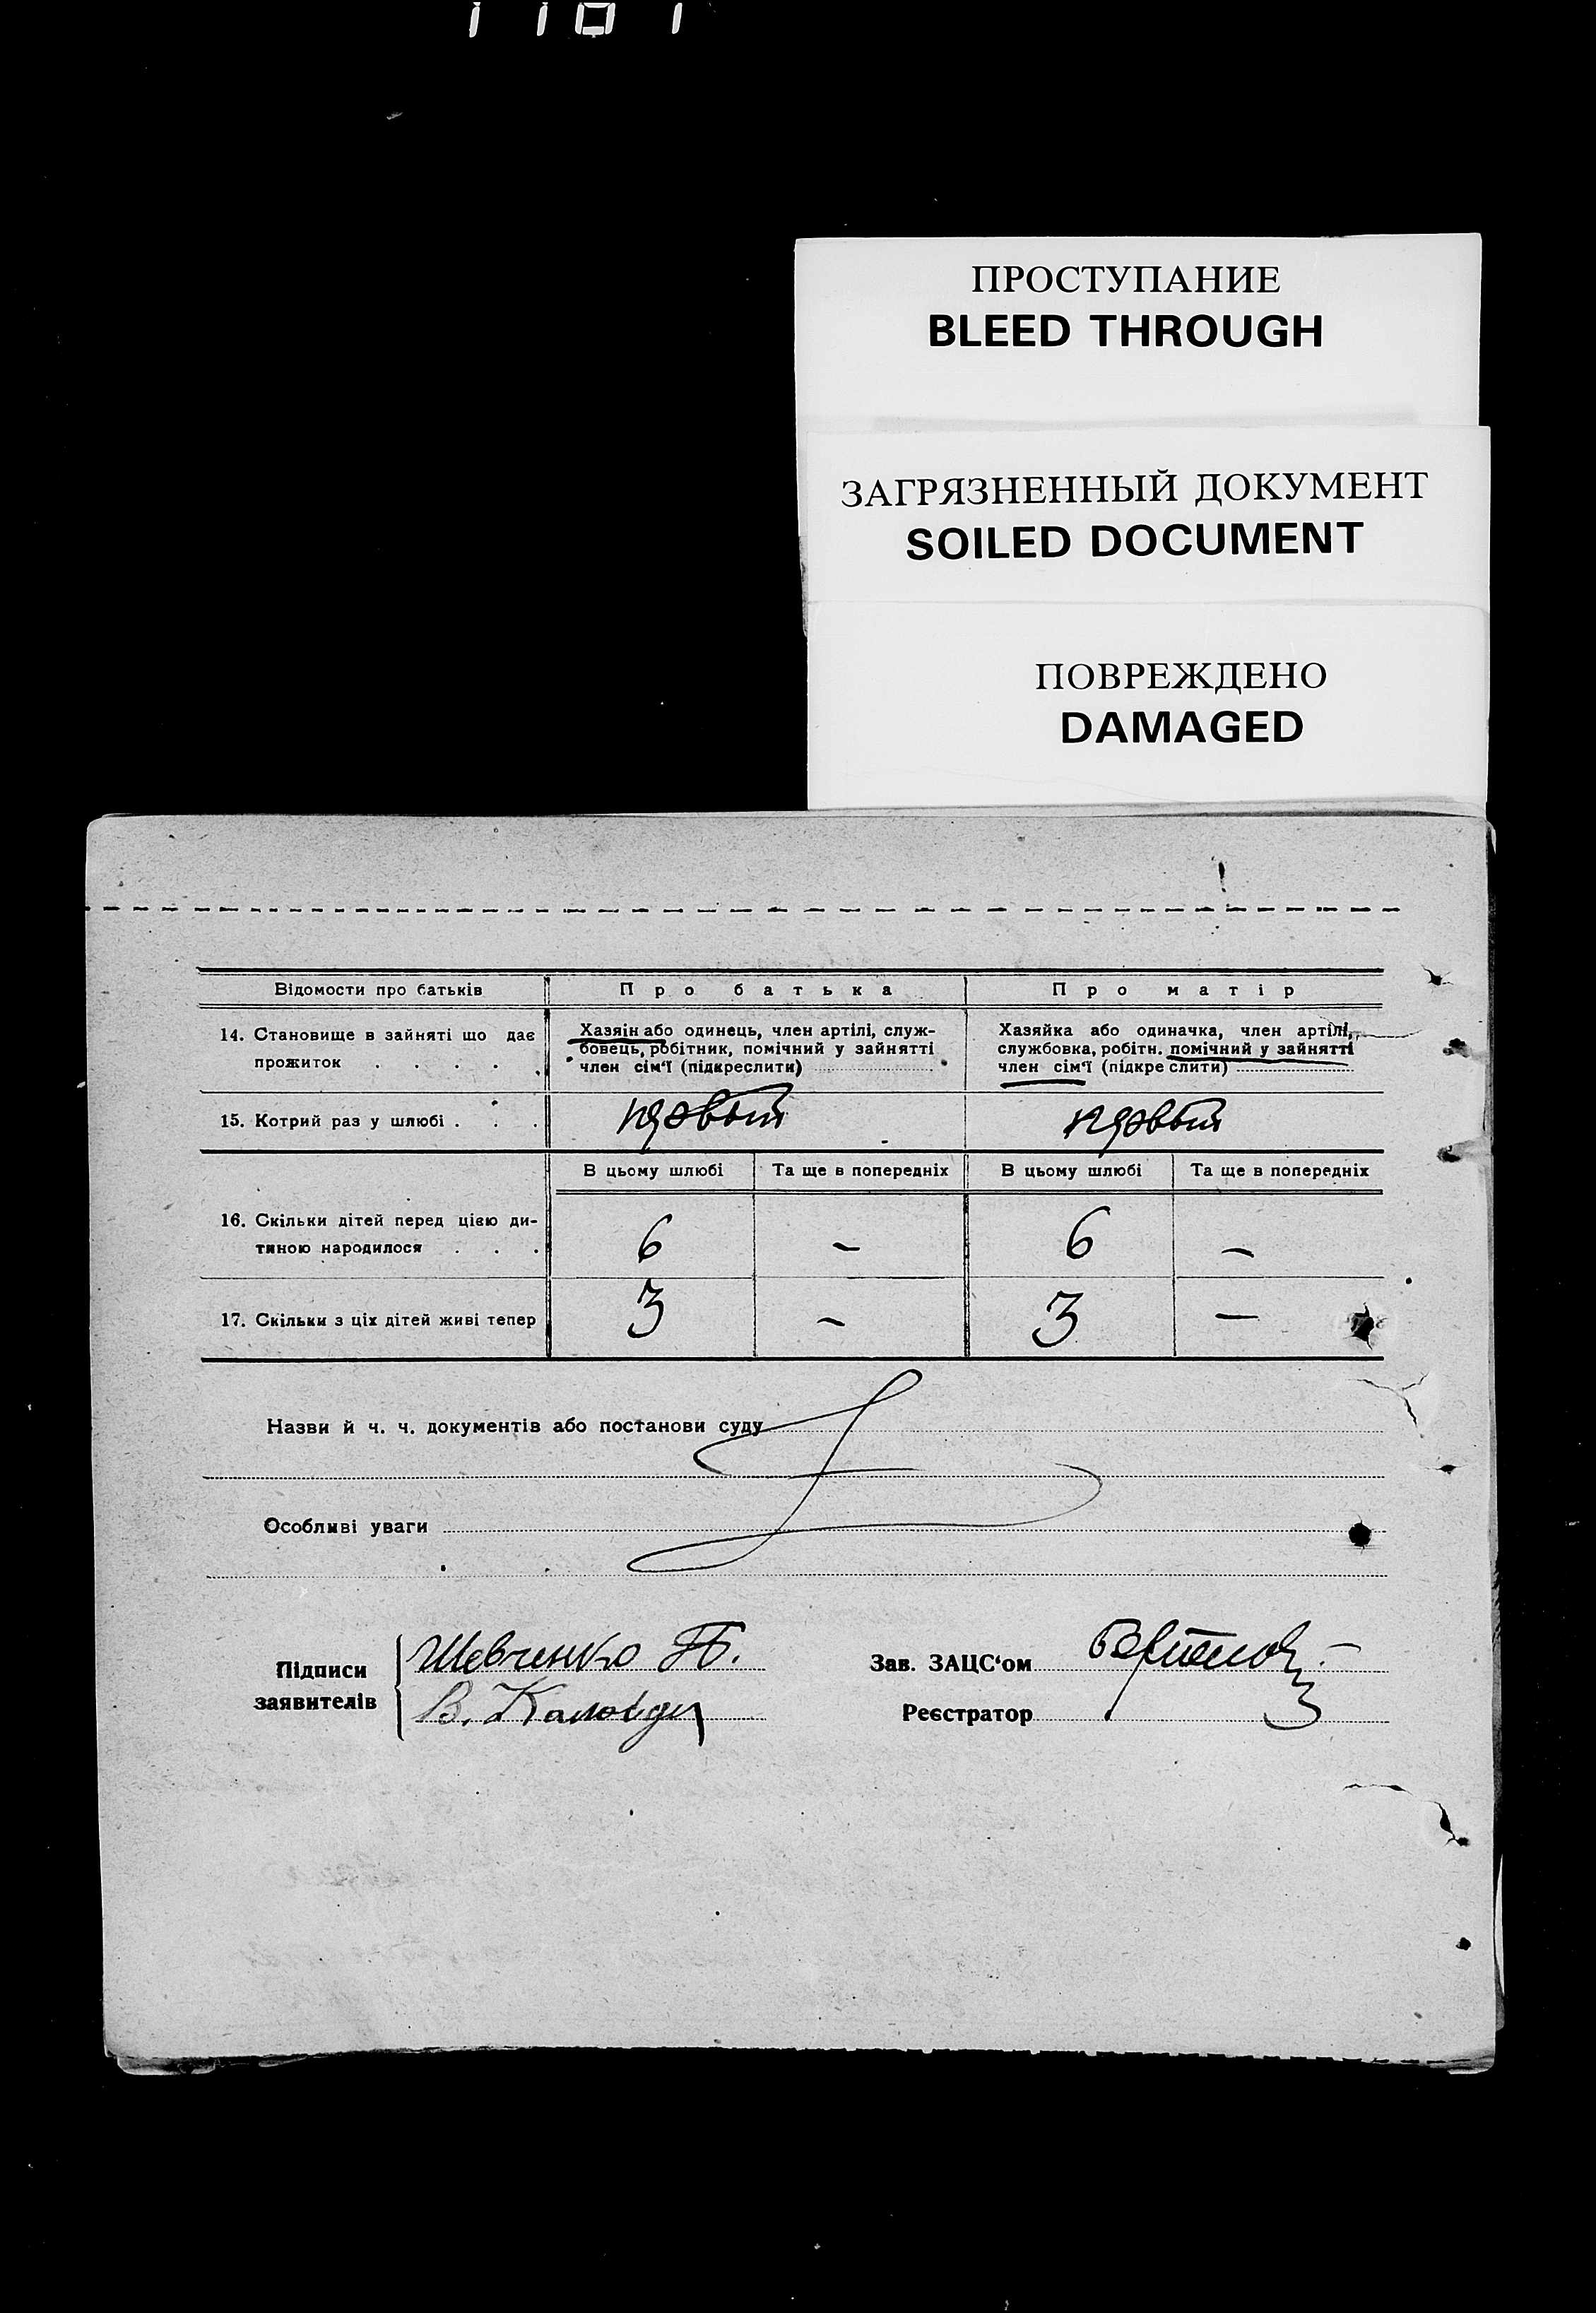 ПРОСТУПАНИЕ
BLEED THROUGH
ЗАГРЯЗНЕННЫЙ ДОКУМЕНТ
SOILED DOCUMENT
ПОВРЕЖДЕНО
DAMAGED
Відомости про батьків
Про батька
Про матір
14. Становище в зайняті що дає
прожиток . . . .
Хазяїн або одинець, член артілі, служ-
бовець, робітник, помічний у зайнятті
член сім'ї (підкреслити)
Хазяйка або одиначка, член артілі,
службовка, робітн. помічний у зайнятті
член сім'ї (підкреслити)
15. Котрий раз у шлюбі . . .
В цьому шлюбі
Та ще в попередніх
В цьому шлюбі
Та ще в попередніх
16. Скільки дітей перед цією ди-
тиною народилося . . .
6
–
6
–
17. Скільки з ціх дітей живі тепер
3
–
3
–
Назви й ч. ч. документів або постанови суду
Особливі уваги
Підписи
заявителів
Шевченко П.
В.
Зав. ЗАЦС'ом
Реєстратор